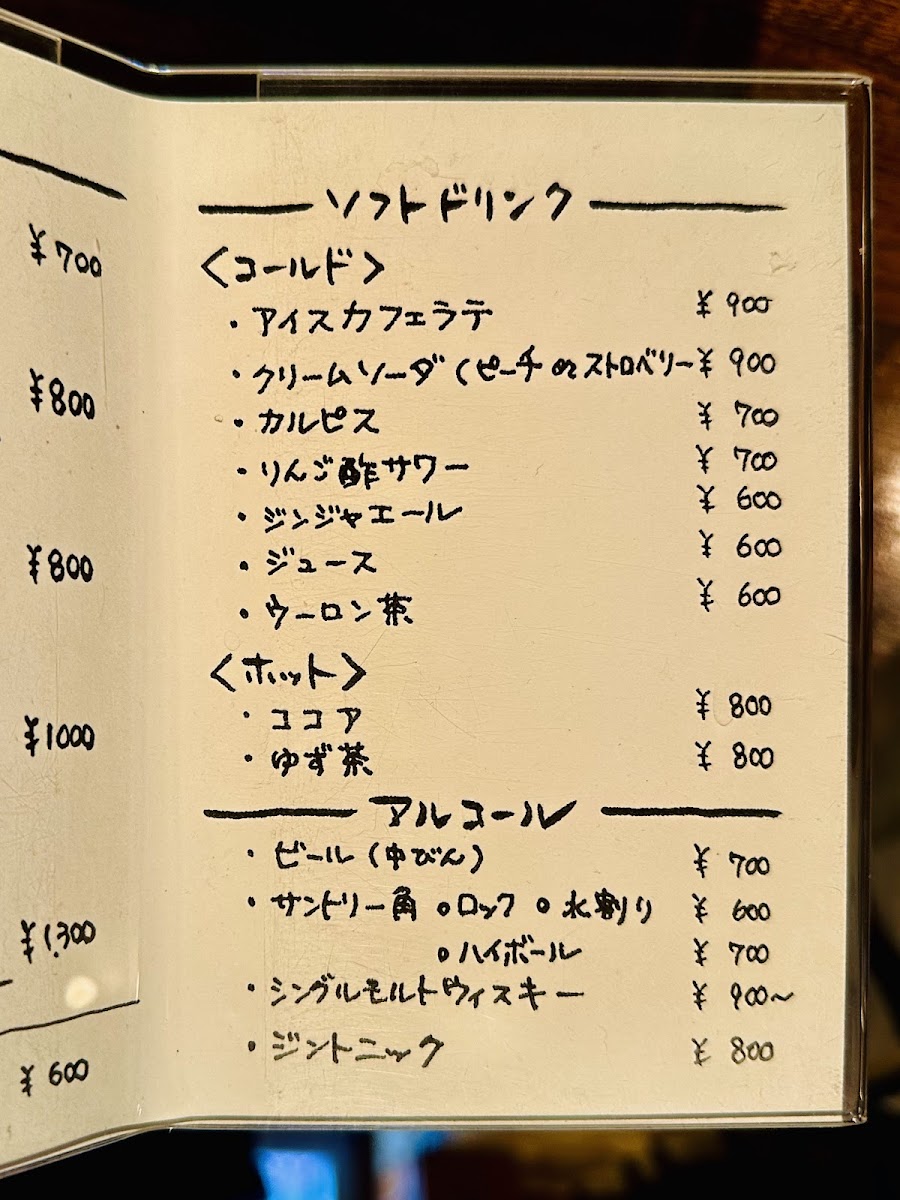 ¥700
¥800
¥800
¥1000
¥1,300
¥600
ソフトドリンク
<コールド>
・アイスカフェラテ ¥900
・クリームソーダ(ピーチ or ストロベリー ¥900
・カルピス ¥700
・りんご酢サワー ¥700
・ジンジャエール ¥600
・ジュース ¥600
・ウーロン茶 ¥600
<ホット>
・ココア ¥800
・ゆず茶 ¥800
アルコール
・ビール(中びん) ¥700
・サントリー角 ○ロック ○水割り ¥600
○ハイボール ¥700
・シングルモルトウィスキー ¥900~
・ジントニック ¥800